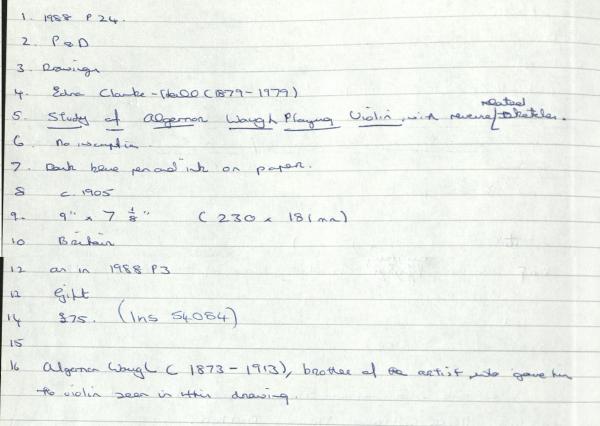 1. 1988 P 24.
2. P & D
3. Drawings
4. Edna Clarke-Hall (1879-1979)
5. Study of Algernon Waugh Playing Violin, with reverse/related sketches.
6 No inscription
7. Dark blue pen and ink on paper.
8 c. 1905
9. 9" x 7 1/8" (230 x 181mm)
10 Britain
12 as in 1988 P3
13 Gift
14 £75. (Ins 54084)
15
16 Algernon Waugh (1873-1913), brother of the artist, who gave him
the violin seen in this drawing.